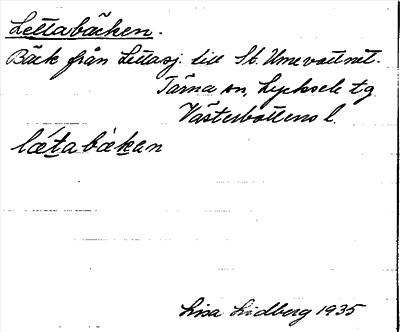 Lettabäcken.
Bäck från Lettasj. till St. Umevattnet.
Tärna sn, Lycksele tg
Västerbottens l.
lætabäkan
Lisa Lidberg 1935